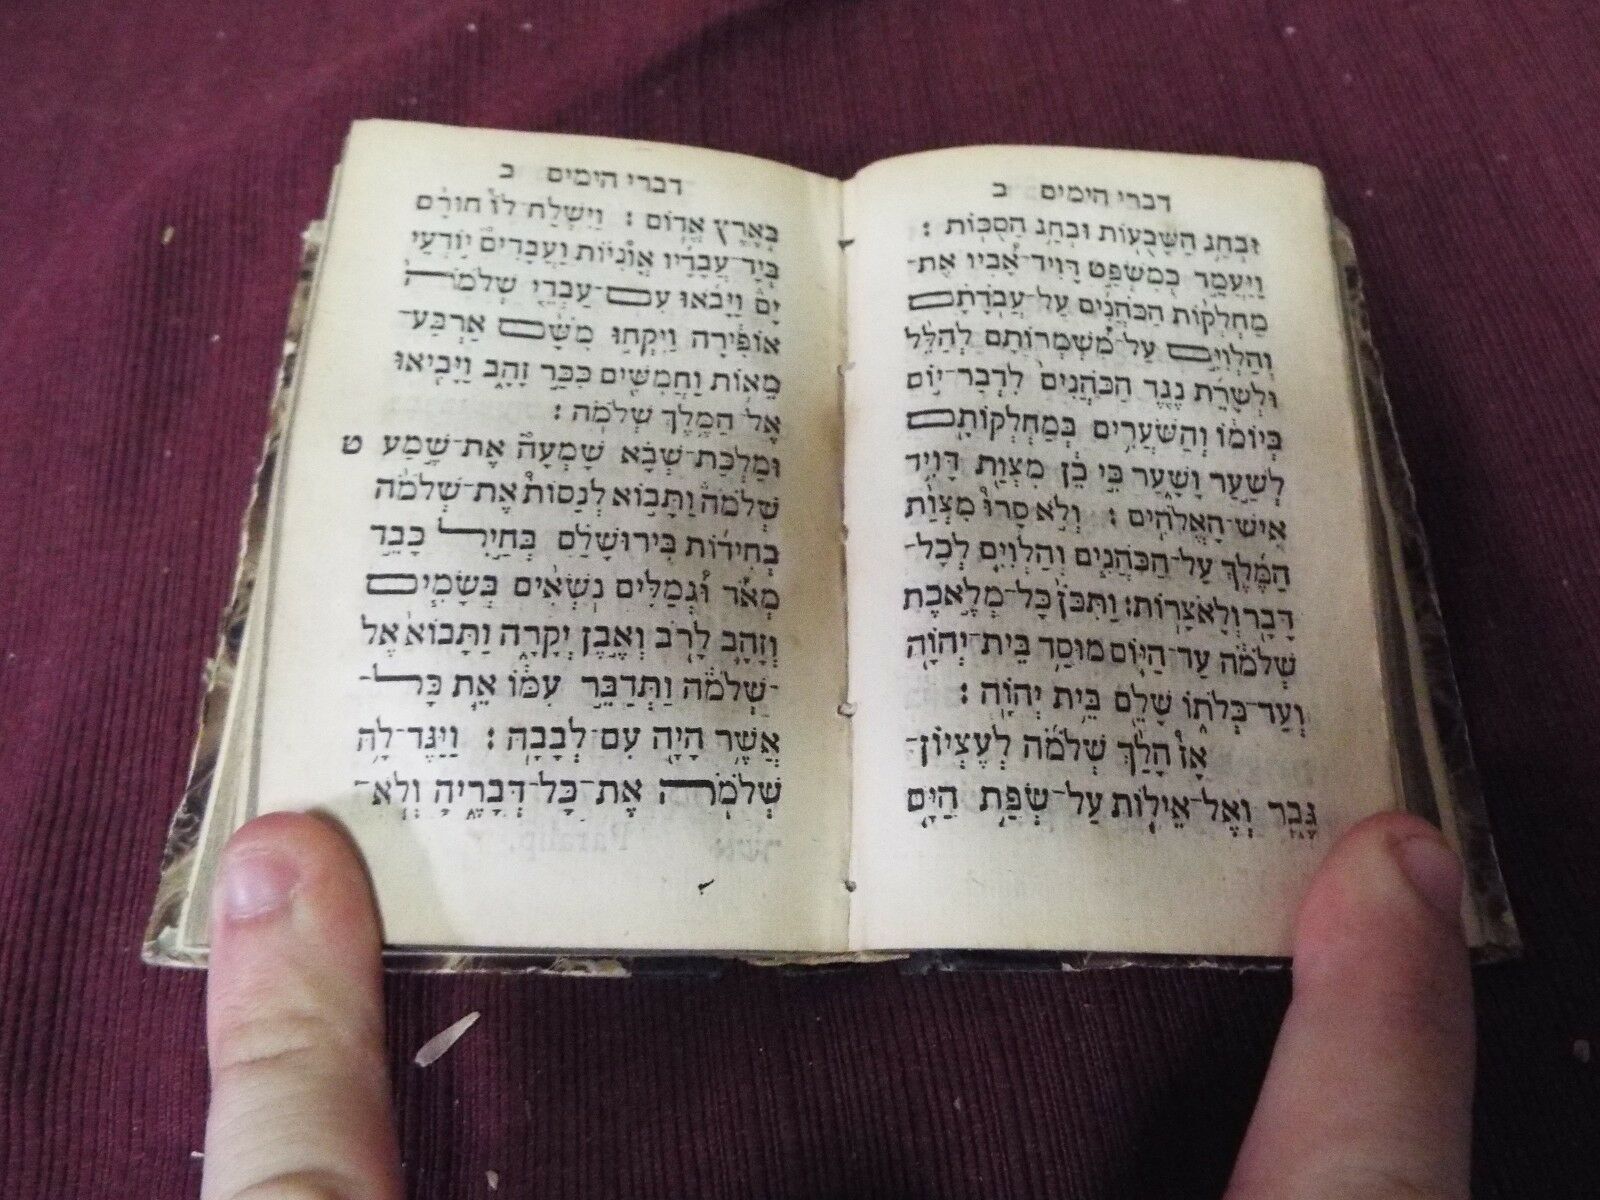 דברי הימים ב
וּבְחַג הַשָּׁבֻעוֹת וּבְחַג הַסֻּכּוֹת׃
וַיַּעֲמֵד כְּמִשְׁפַּט דָּוִיד־אָבִיו אֶת־
מַחְלְקוֹת הַכֹּהֲנִים עַל־עֲבֹדָתָם
וְהַלְוִיִּם עַל־מִשְׁמְרוֹתָם לְהַלֵּל
וּלְשָׁרֵת נֶגֶד הַכֹּהֲנִים לִדְבַר־יוֹם
בְּיוֹמוֹ וְהַשֹּׁעֲרִים בְּמַחְלְקוֹתָם
לְשַׁעַר וָשָׁעַר כִּי כֵן מִצְוַת דָּוִיד
אִישׁ־הָאֱלֹהִים׃ וְלֹא סָרוּ מִצְוַת
הַמֶּלֶךְ עַל־הַכֹּהֲנִים וְהַלְוִיִּם לְכָל־
דָּבָר וְלָאֹצָרוֹת׃ וַתִּכֹּן כָּל־מְלֶאכֶת
שְׁלֹמֹה עַד־הַיּוֹם מוּסַד בֵּית־יְהוָֹה
וְעַד־כְּלֹתוֹ שָׁלֵם בֵּית יְהוָֹה׃
אָז הָלַךְ שְׁלֹמֹה לְעֶצְיוֹן־
גֶּבֶר וְאֶל־אֵילוֹת עַל־שְׂפַת הַיָּם
דברי הימים ב
בְּאֶרֶץ אֱדוֹם׃ וַיִּשְׁלַח־לוֹ חוּרָם
בְּיַד־עֲבָדָיו אֳוֹנִיּוֹת וַעֲבָדִים יוֹדְעֵי
יָם וַיָּבֹאוּ עִם־עַבְדֵי שְׁלֹמֹה
אוֹפִירָה וַיִּקְחוּ מִשָּׁם אַרְבַּע־
מֵאוֹת וַחֲמִשִּׁים כִּכַּר זָהָב וַיָּבִיאוּ
אֶל־הַמֶּלֶךְ שְׁלֹמֹה׃
וּמַלְכַּת־שְׁבָא שָׁמְעָה אֶת־שֵׁמַע ט
שְׁלֹמֹה וַתָּבוֹא לְנַסּוֹת אֶת־שְׁלֹמֹה
בְחִידוֹת בִּירוּשָׁלִַם בְּחַיִל כָּבֵד
מְאֹד וּגְמַלִּים נֹשְׂאִים בְּשָׂמִים
וְזָהָב לָרֹב וְאֶבֶן יְקָרָה וַתָּבוֹא אֶל
־שְׁלֹמֹה וַתְּדַבֵּר עִמּוֹ אֵת כָּל־
אֲשֶׁר הָיָה עִם־לְבָבָהּ׃ וַיַּגֶּד־לָהּ
שְׁלֹמֹה אֶת־כָּל־דְּבָרֶיהָ וְלֹא־